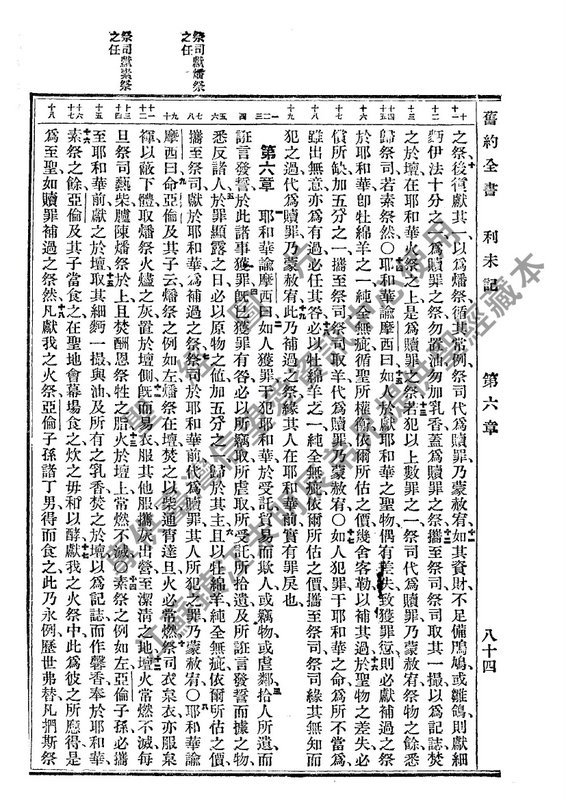 舊約全書　利未記　第六章　八十四
祭司獻燔祭
之任
祭司獻素祭
之任
之祭後復獻其一以爲燔祭循其常例祭司代爲贖罪乃蒙赦宥如其資財不足備鳲鳩或雛鴿則獻細
麪伊法十分之一爲贖罪之祭勿置油勿加乳香蓋爲贖罪之祭攜至祭司祭司取其一撮以爲記誌焚
之於壇在耶和華火祭之上是爲贖罪之祭若犯以上數罪之一祭司代爲贖罪乃蒙赦宥祭物之餘悉
歸祭司若素祭然〇耶和華諭摩西曰如人於獻耶和華之聖物偶有差失致獲罪愆則必獻補過之祭
於耶和華卽牡綿羊之一純全無疵循聖所權衡依爾所估之價幾舍客勒以補其過於聖物之差失必
償所缺加五分之一攜至祭司祭司取羊代爲贖罪乃蒙赦宥〇如人犯罪干耶和華之命爲所不當爲
雖出無意亦爲有過必任其咎必以牡綿羊之一純全無疵依爾所估之價攜至祭司祭司緣其無知而
犯之過代爲贖罪乃蒙赦宥此乃補過之祭緣其人在耶和華前實有罪戾也
第六章　耶和華諭摩西曰如人獲罪干犯耶和華於受託交易而欺人或竊物或虐鄰拾人所遺而
誑言發誓於此諸事獲罪旣已獲罪有咎必以所竊取所虐取所受託所拾遺及所誑言發誓而據之物
悉反諸人於罪顯露之日必以原物之值加五分之一歸於其主且以牡綿羊純全無疵依爾所估之價
攜至祭司獻於耶和華爲補過之祭祭司於耶和華前代爲贖罪其人所犯之罪乃蒙赦宥〇耶和華諭
摩西曰命亞倫及其子云燔祭之例如左燔祭在壇焚之以柴通宵達旦火必常燃祭司衣枲衣亦服枲
褌以蔽下體取燔祭火燼之灰置於壇側旣而易衣服其他服攜灰出營至潔清之地壇火常燃不滅每
旦祭司爇柴臚陳燔祭於上且焚酬恩祭牲之脂火於壇上常燃不滅〇素祭之例如左亞倫子孫必攜
至耶和華前獻之於壇取其細麪一撮與油及所有之乳香焚之於壇以爲記誌而作馨香奉於耶和華
素祭之餘亞倫及其子當食之在聖地會幕場食之炊之毋和以酵獻我之火祭中此爲彼之所應得是
爲至聖如贖罪補過之祭然凡獻我之火祭亞倫子孫諸丁男得而食之此乃永例歷世弗替凡捫斯祭